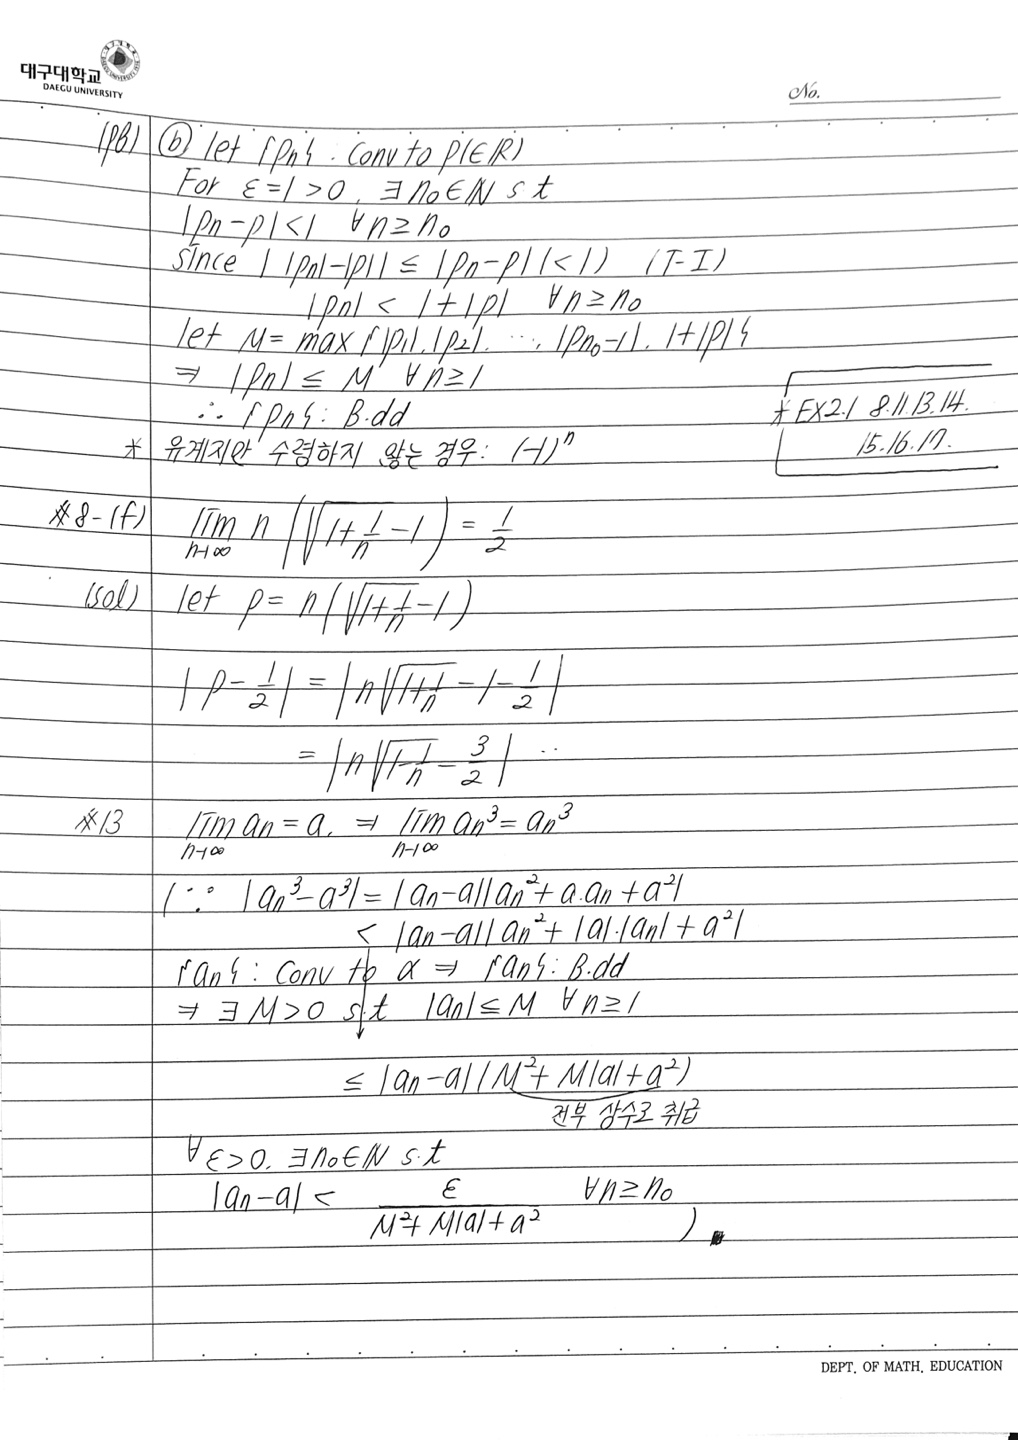 대구대학교
DAEGU UNIVERSITY
No.
(pf) ⓑ let {pn} : Conv to p(∈R)
For ε=1>0, ∃n₀∈N s.t
|pn-p|<1 ∀n≥n₀
since | |pn|-|p| | ≤ |pn-p| (<1) (T-I)
|pn| < 1+|p| ∀n≥n₀
let M= max{|p₁|, |p₂|, ···, |pn₀-1|, 1+|p|}
⇒ |pn| ≤ M ∀n≥1
∴ {pn} : B.dd
* EX2.1 8.11.13.14.
15.16.17.
* 유계지만 수렴하지 않는 경우: (-1)ⁿ
#8-(f) lim n→∞ n(√(1+1/n) -1) = 1/2
(sol) let p= n(√(1+1/n) -1)
|p-1/2| = |n√(1+1/n) -1-1/2|
= |n√(1-1/n) - 3/2| ··
#13 lim n→∞ an = a. ⇒ lim n→∞ an³ = an³
(∵ |an³-a³| = |an-a||an²+a.an+a²|
< |an-a||an²+|a|·|an|+a²|
{an} : Conv to α ⇒ {an} : B.dd
⇒ ∃M>0 s.t |an|≤M ∀n≥1
≤ |an-a|(M²+M|a|+a²)
전부 상수로 취급
∀ε>0. ∃n₀∈N s.t
|an-a| < ε/(M²+M|a|+a²) ∀n≥n₀ )
DEPT. OF MATH. EDUCATION